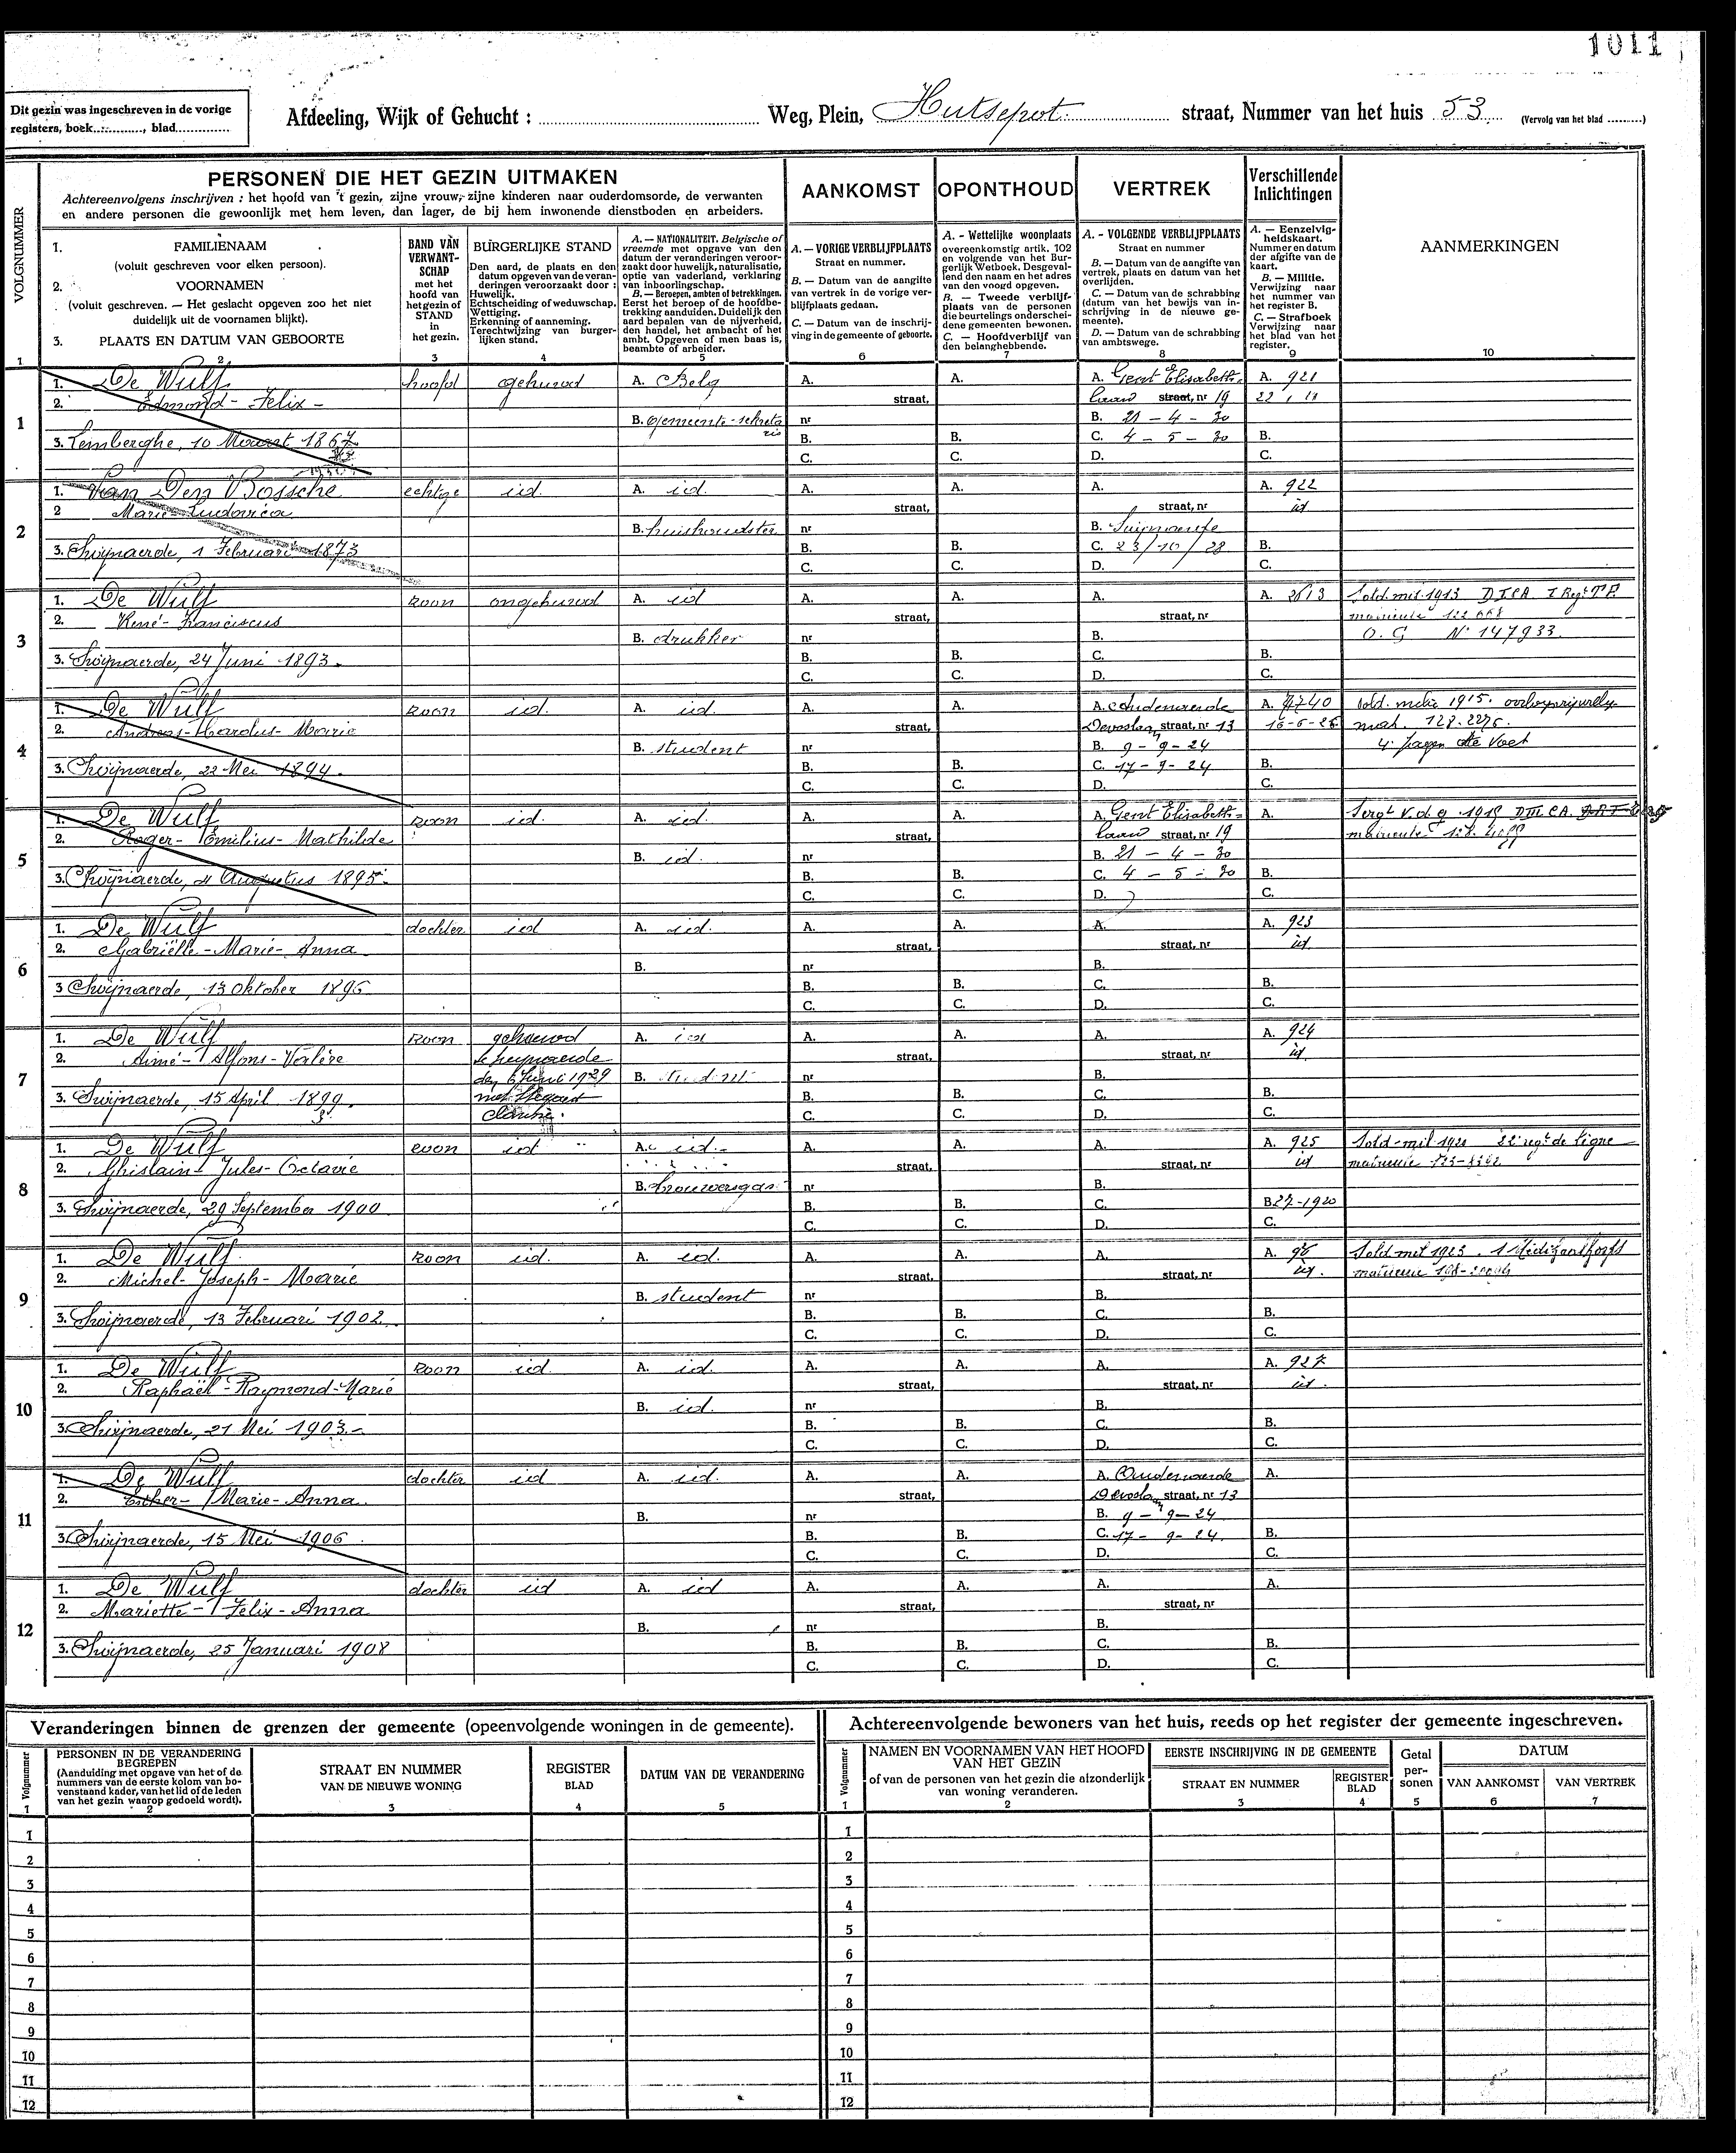 1011
Dit gezin was ingeschreven in de vorige
registers, boek.........., blad.............
Afdeeling, Wijk of Gehucht : ............ Weg, Plein, Hutsepot straat, Nummer van het huis 53 (Vervolg van het blad ..........)
VOLGNUMMER
PERSONEN DIE HET GEZIN UITMAKEN
Achtereenvolgens inschrijven : het hoofd van 't gezin, zijne vrouw, zijne kinderen naar ouderdomsorde, de verwanten
en andere personen die gewoonlijk met hem leven, dan lager, de bij hem inwonende dienstboden en arbeiders.
1. FAMILIENAAM
(voluit geschreven voor elken persoon).
2. VOORNAMEN
(voluit geschreven. — Het geslacht opgeven zoo het niet
duidelijk uit de voornamen blijkt).
3. PLAATS EN DATUM VAN GEBOORTE
BAND VAN
VERWANT-
SCHAP
met het
hoofd van
het gezin of
STAND
in
het gezin.
BURGERLIJKE STAND
Den aard, de plaats en den
datum opgeven van de veran-
deringen veroorzaakt door :
Huwelijk.
Echtscheiding of weduwschap.
Wettiging.
Erkenning of aanneming.
Terechtwijzing van burger-
lijken stand.
A. — NATIONALITEIT. Belgische of
vreemde met opgave van den
datum der veranderingen veroor-
zaakt door huwelijk, naturalisatie,
optie van vaderland, verklaring
van inboorlingschap.
B. — Beroepen, ambten of betrekkingen.
Eerst het beroep of de hoofdbe-
trekking aanduiden. Duidelijk den
aard bepalen van de nijverheid,
den handel, het ambacht of het
ambt. Opgeven of men baas is,
beambte of arbeider.
AANKOMST
A. — VORIGE VERBLIJFPLAATS
Straat en nummer.
B. — Datum van de aangifte
van vertrek in de vorige ver-
blijfplaats gedaan.
C. — Datum van de inschrij-
ving in de gemeente of geboorte.
OPONTHOUD
A. - Wettelijke woonplaats
overeenkomstig artik. 102
en volgende van het Bur-
gerlijk Wetboek. Desgeval-
lend den naam en het adres
van den voogd opgeven.
B. — Tweede verblijf-
plaats van de personen
die beurtelings onderschei-
dene gemeenten bewonen.
C. — Hoofdverblijf van
den belanghebbende.
VERTREK
A. - VOLGENDE VERBLIJFPLAATS
Straat en nummer
B. — Datum van de aangifte van
vertrek, plaats en datum van het
overlijden.
C. — Datum van de schrabbing
(datum van het bewijs van in-
schrijving in de nieuwe ge-
meente).
D. — Datum van de schrabbing
van ambtswege.
Verschillende
Inlichtingen
A. — Eenzelvig-
heidskaart.
Nummer en datum
der afgifte van de
kaart.
B. — Militie.
Verwijzing naar
het nummer van
het register B.
C. — Strafboek
Verwijzing naar
het blad van het
register.
AANMERKINGEN
1 2 3 4 5 6 7 8 9 10
1
1. De Wulf hoofd gehuwd A. Belg A. A. A. Gent Elisabeth= A. 921
2. Edmond - Felix - straat, laan straat, nr 19
B. gemeente-sekreta nr B. 21 - 4 - 30
ris
3. Lemberghe, 10 Maart 1867 B. B. C. 4 - 5 - 30 B.
C. C. D. C.
2
1. Van Den Bossche echtge id. A. id. A. A. A. A. 922
2 Marie-Ludovica straat, straat, nr id
B. huishoudster nr B.
3. Swijnaerde, 1 Februari 1873 B. B. C. 23/10/28 B.
C. C. D. C.
3
1. De Wulf zoon ongehuwd A. id A. A. A. A. 2613 Sold. mil. 1913
2. René - Franciscus straat, straat, nr
B. drukker nr B. O. G N° 147933
3. Swijnaerde, 24 Juni 1893. B. B. C. B.
C. C. D. C.
4
1. De Wulf zoon id. A. id. A. A. A. Audenaerde A. sold. 1915.
2. straat, straat, nr 13
B. student nr B. 9 - 9 - 24
3. Swijnaerde, 22 Mei 1894. B. B. C. 17 - 9 - 24 B.
C. C. D. C.
5
1. De Wulf zoon id. A. id. A. A. A. Gent Elisabeth= A.
2. Roger - Emilius - Mathilde straat, laan straat, nr 19
B. id. nr B. 21 - 4 - 30
3. Swijnaerde, Augustus 1895 B. B. C. 4 - 5 - 30 B.
C. C. D. C.
6
1. De Wulf dochter id A. id. A. A. A. A. 923
2. Gabriëlle - Marie - Anna straat, straat, nr id.
B. nr B.
3 Swijnaerde, 13 Oktober 1896 B. B. C. B.
C. C. D. C.
7
1. De Wulf zoon gehuwd A. id A. A. A. A. 924
2. Aimé - Alfons - Valère straat, straat, nr id.
den 6 Juni 1929 B. student nr B.
3. Swijnaerde, 15 April 1899. met B. B. C. B.
C. C. D. C.
8
1. De Wulf zoon id A. id. A. A. A. A. 925 Sold. mil 1920 22e regt de ligne
2. Ghislain - Jules - Octavie straat, straat, nr id
B. brouwersgast nr B.
3. Swijnaerde, 29 September 1900 B. B. C. B 27-1920
C. C. D. C.
9
1. De Wulf zoon id. A. id. A. A. A. A.
2. Michel - Joseph - Marie straat, straat, nr id.
B. student nr B.
3. Swijnaerde, 13 Februari 1902 B. B. C. B.
C. C. D. C.
10
1. De Wulf zoon id. A. id. A. A. A. A. 927
2. Raphaël - Raymond - Marie straat, straat, nr id.
B. id. nr B.
3. Swijnaerde, 21 Mei 1903.- B. B. C. B.
C. C. D. C.
11
1. De Wulf dochter id A. id. A. A. A. Oudenaerde A.
2. Esther - Marie - Anna straat, straat, nr 13
B. nr B. 9 - 9 - 24
3. Swijnaerde, 15 Mei 1906 B. B. C. 17 - 9 - 24. B.
C. C. D. C.
12
1. De Wulf dochter id A. id A. A. A. A.
2. Mariette - Felix - Anna straat, straat, nr
B. nr B.
3. Swijnaerde, 25 Januari 1908 B. B. C. B.
C. C. D. C.
Veranderingen binnen de grenzen der gemeente (opeenvolgende woningen in de gemeente).
Volgnummer
PERSONEN IN DE VERANDERING
BEGREPEN
(Aanduiding met opgave van het of de
nummers van de eerste kolom van bo-
venstaand kader, van het lid of de leden
van het gezin waarop gedoeld wordt).
STRAAT EN NUMMER
VAN DE NIEUWE WONING
REGISTER
BLAD
DATUM VAN DE VERANDERING
1 2 3 4 5
1
2
3
4
5
6
7
8
9
10
11
12
Achtereenvolgende bewoners van het huis, reeds op het register der gemeente ingeschreven.
Volgnummer
NAMEN EN VOORNAMEN VAN HET HOOFD
VAN HET GEZIN
of van de personen van het gezin die afzonderlijk
van woning veranderen.
EERSTE INSCHRIJVING IN DE GEMEENTE
STRAAT EN NUMMER
REGISTER
BLAD
Getal
per-
sonen
DATUM
VAN AANKOMST
VAN VERTREK
1 2 3 4 5 6 7
1
2
3
4
5
6
7
8
9
10
11
12